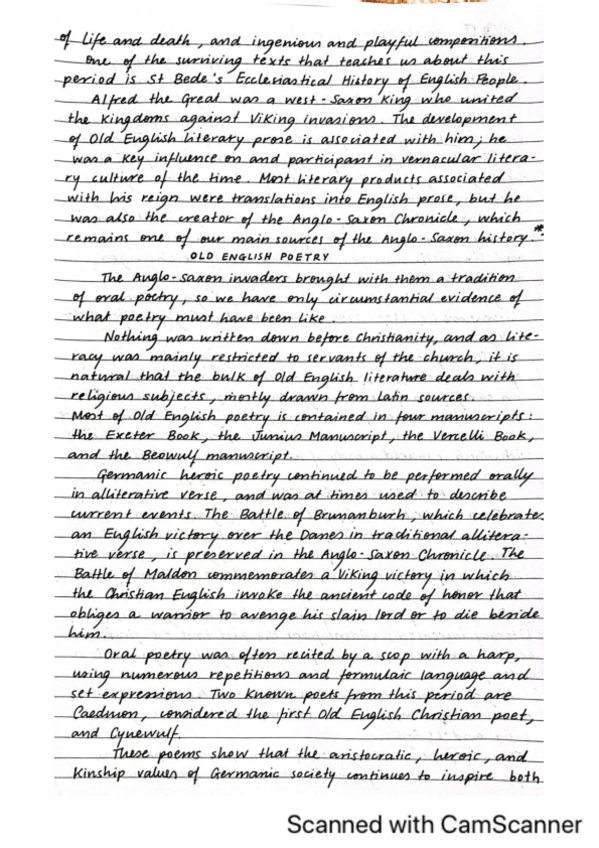 of life and death, and ingenious and playful compositions.
One of the surviving texts that teaches us about this
period is St Bede's Ecclesiastical History of English People.
Alfred the Great was a west-Saxon King who united
the Kingdoms against Viking invasions. The development
of Old English literary prose is associated with him; he
was a key influence on and participant in vernacular litera-
ry culture of the time. Most literary products associated
with his reign were translations into English prose, but he
was also the creator of the Anglo-Saxon Chronicle, which
remains one of our main sources of the Anglo-Saxon history.*
OLD ENGLISH POETRY
The Anglo-Saxon invaders brought with them a tradition
of oral poetry, so we have only circumstantial evidence of
what poetry must have been like.
Nothing was written down before Christianity, and as lite-
racy was mainly restricted to servants of the church, it is
natural that the bulk of Old English literature deals with
religious subjects, mostly drawn from latin sources.
Most of Old English poetry is contained in four manuscripts:
the Exeter Book, the Junius Manuscript, the Vercelli Book,
and the Beowulf manuscript.
Germanic heroic poetry continued to be performed orally
in alliterative verse, and was at times used to describe
current events. The Battle of Brunanburh, which celebrate
an English victory over the Danes in traditional allitera-
tive verse, is preserved in the Anglo-Saxon Chronicle. The
Battle of Maldon commemorates a Viking victory in which
the Christian English invoke the ancient code of honor that
obliges a warrior to avenge his slain lord or to die beside
him.
Oral poetry was often recited by a scop with a harp,
using numerous repetitions and formulaic language and
set expressions. Two known poets from this period are
Caedmon, considered the first Old English Christian poet,
and Cynewulf.
These poems show that the aristocratic, heroic, and
Kinship values of Germanic society continues to inspire both
Scanned with CamScanner